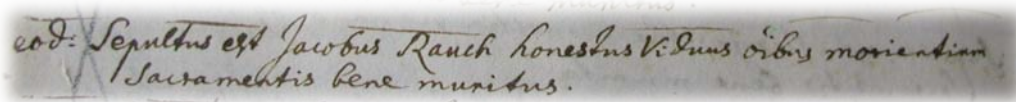 eod: Sepultus est Jacobus Rauch honestus Viduus öibus morientium
Sacramentis bene munitus.